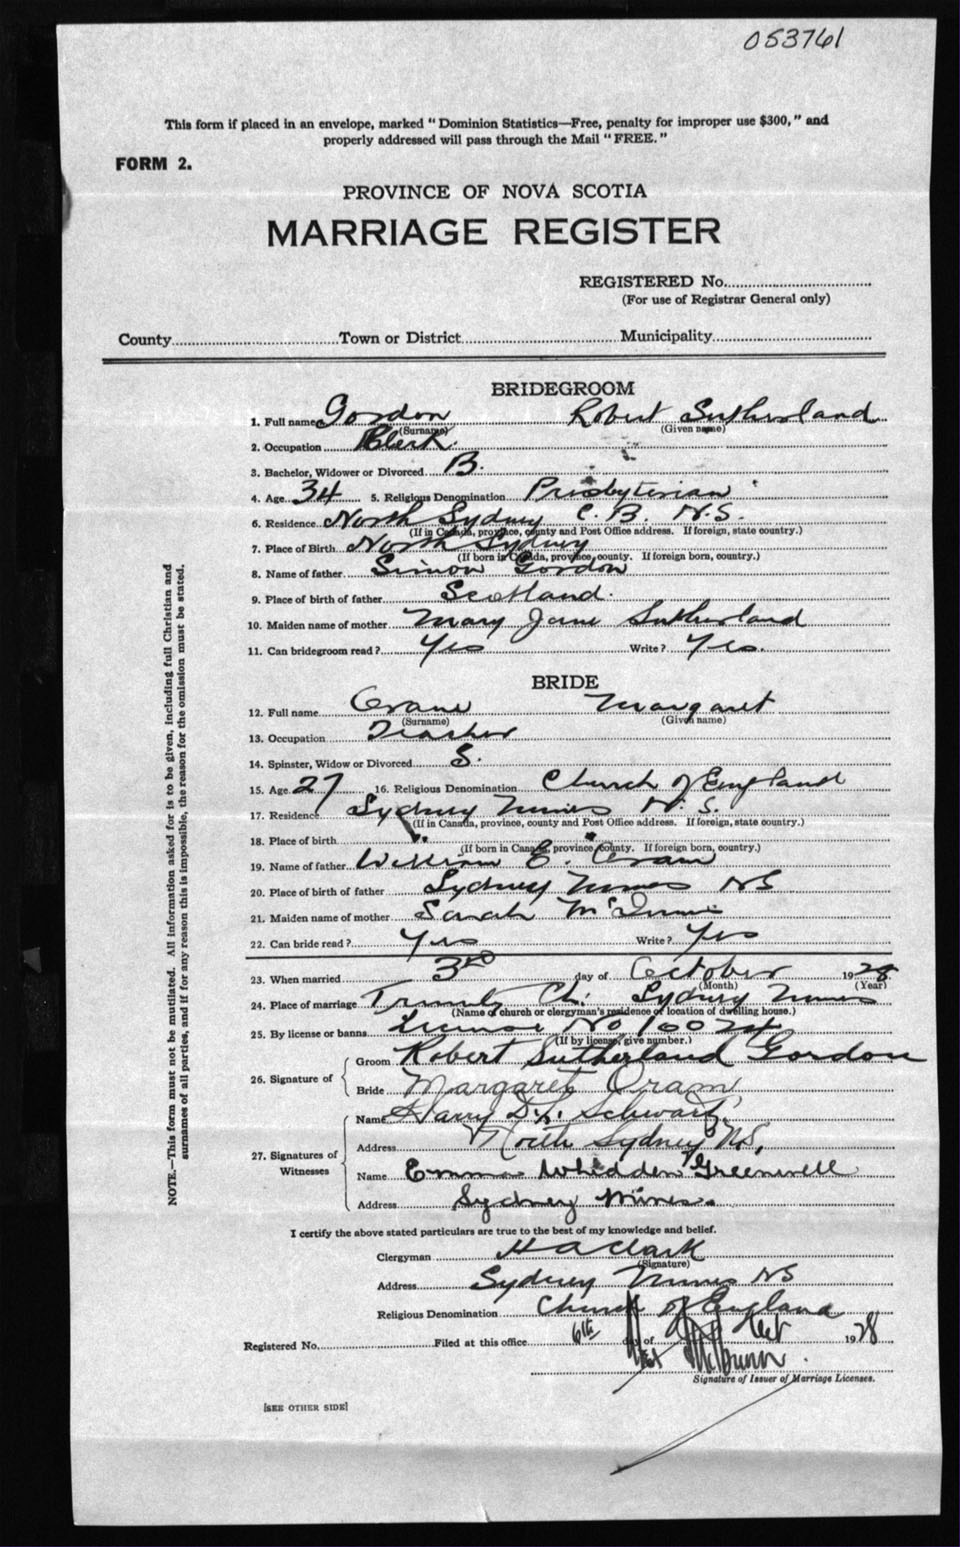 053761
This form if placed in an envelope, marked " Dominion Statistics—Free, penalty for improper use $300, " and
properly addressed will pass through the Mail " FREE. "
FORM 2.
PROVINCE OF NOVA SCOTIA
MARRIAGE REGISTER
REGISTERED No.
(For use of Registrar General only)
County Town or District Municipality
BRIDEGROOM
1. Full name Gordon Robert Sutherland
(Surname) (Given name)
2. Occupation Clerk.
3. Bachelor, Widower or Divorced B.
4. Age 34 5. Religious Denomination Presbyterian
6. Residence North Sydney C. B. N.S.
(If in Canada, province, county and Post Office address. If foreign, state country.)
7. Place of Birth North Sydney
(If born in Canada, province, county. If foreign born, country.)
8. Name of father Simon Gordon
9. Place of birth of father Scotland.
10. Maiden name of mother Mary Jane Sutherland
11. Can bridegroom read ? Yes Write ? Yes.
BRIDE
12. Full name Margaret
(Surname) (Given name)
13. Occupation Teacher
14. Spinster, Widow or Divorced S.
15. Age 27 16. Religious Denomination Church of England
17. Residence Sydney Mines N. S.
(If in Canada, province, county and Post Office address. If foreign, state country.)
18. Place of birth
(If born in Canada, province, county. If foreign born, country.)
19. Name of father William E. Oram
20. Place of birth of father Sydney Mines NS
21. Maiden name of mother Sarah
22. Can bride read ? Yes Write ? Yes
23. When married 3rd day of October 1928
(Month) (Year)
24. Place of marriage Trinity Ch. Sydney Mines
(Name of church or clergyman's residence or location of dwelling house.)
25. By license or banns License No
(If by license, give number.)
26. Signature of
Groom Robert Sutherland Gordon
Bride Margaret Oram
27. Signatures of Witnesses
Name Harry Schwartz
Address North Sydney N.S.
Name Emma Whidden Greenwell
Address Sydney Mines.
I certify the above stated particulars are true to the best of my knowledge and belief.
Clergyman H A Clark
(Signature)
Address Sydney Mines NS
Religious Denomination Church of England
Registered No. Filed at this office 6th day of Oct 1928
Signature of Issuer of Marriage Licenses.
[SEE OTHER SIDE]
NOTE.—This form must not be mutilated. All information asked for is to be given, including full Christian and
surnames of all parties, and if for any reason this is impossible, the reason for the omission must be stated.